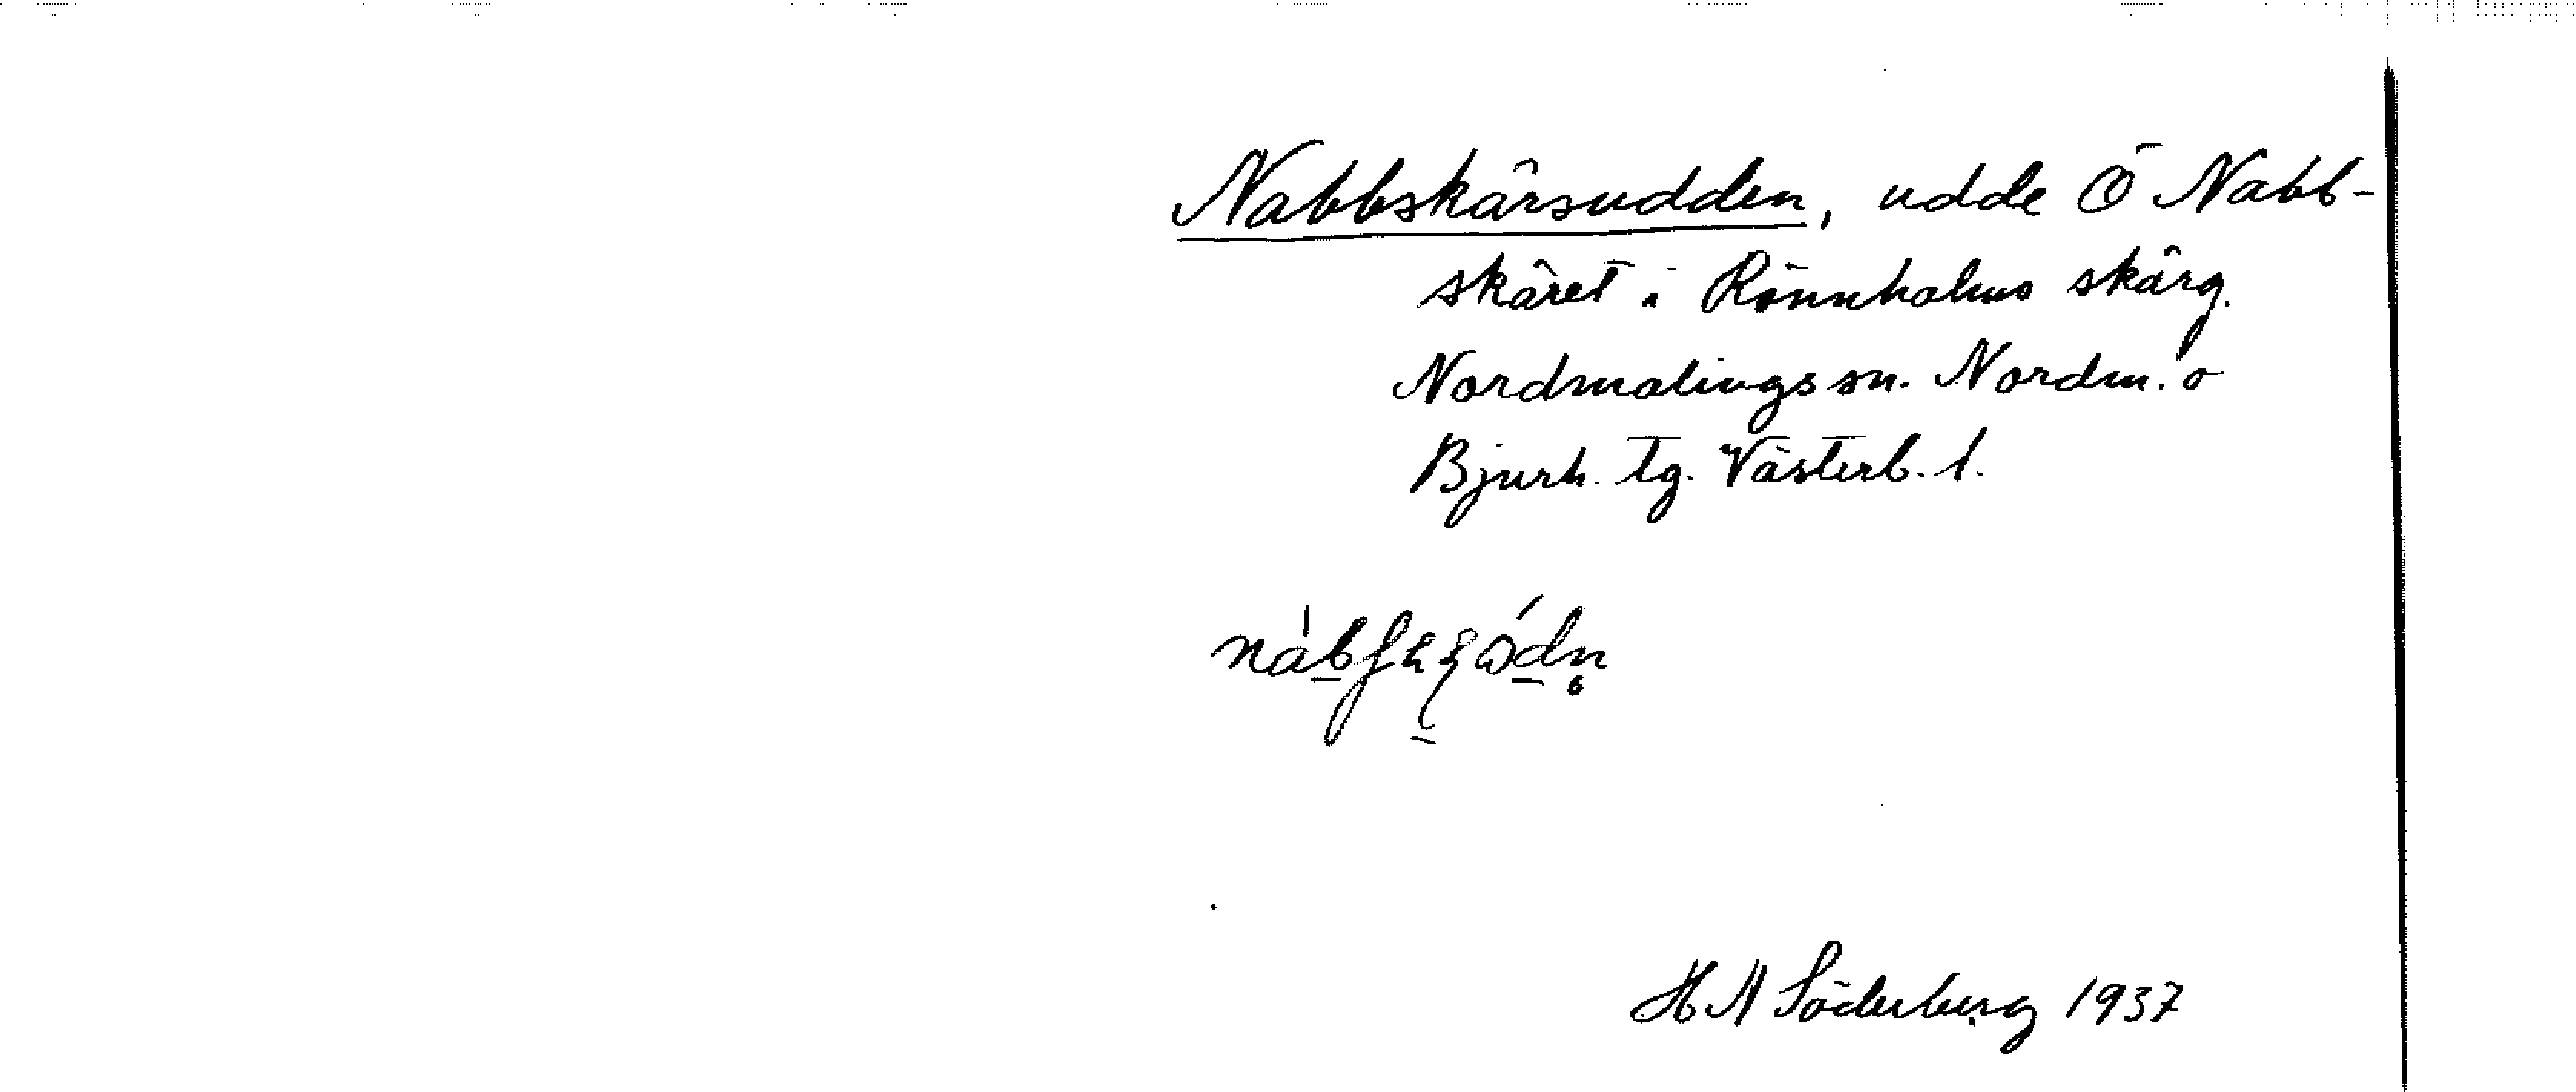 Nabbskärsudden, udde Ö Nabb-
skäret i Rönnholms skärg.
Nordmalings sn. Nordm. o
Bjurh. tg. Västerb. l.
H A Söderberg 1937